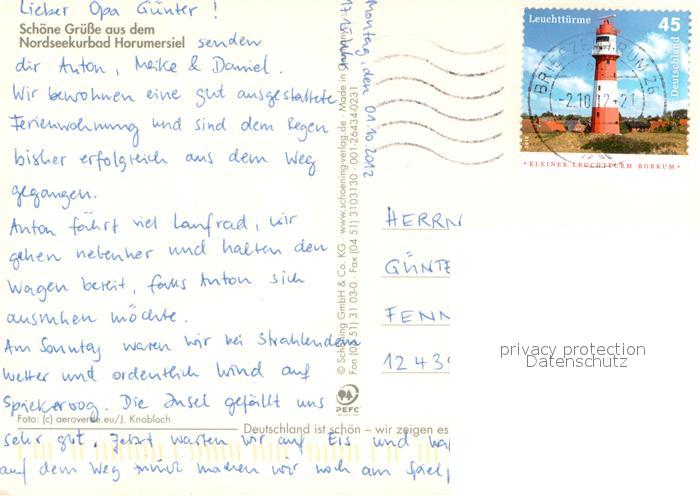 Lieber Opa Günter !
Schöne Grüße aus dem
Nordseekurbad Horumersiel senden
dir Anton, Meike & Daniel.
Wir bewohnen eine gut ausgestattete
Ferienwohnung und sind dem Regen
bisher erfolgreich aus dem Weg
gegangen.
Anton fährt viel Laufrad, wir
gehen nebenher und halten den
Wagen bereit, falls Anton sich
ausruhen möchte.
Am Sonntag waren wir bei strahlendem
Wetter und ordentlich Wind auf
Spiekeroog. Die Insel gefällt uns
Foto: (c) aeroverde.eu/J. Knobloch
sehr gut. Jetzt warten wir auf Eis und
auf dem Weg machen wir noch am Spielp
Deutschland ist schön – wir zeigen es
Montag, den 01.10.2012
© Schöning GmbH & Co. KG · www.schoening-verlag.de · Made in
Fon (04 51) 31 03-0 · Fax (04 51) 3103130 · 001-26434-0231
PEFC
Leuchttürme 45
Deutschland
BRIEFZENTRUM 26
-2.10.12-21
• KLEINER LEUCHTTURM BORKUM •
HERRN
GÜNTE
FENN
1243
privacy protection
Datenschutz